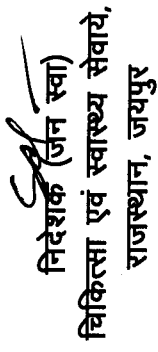 निदेशक (जन स्वा)
चिकित्सा एवं स्वास्थ्य सेवायें,
राजस्थान, जयपुर